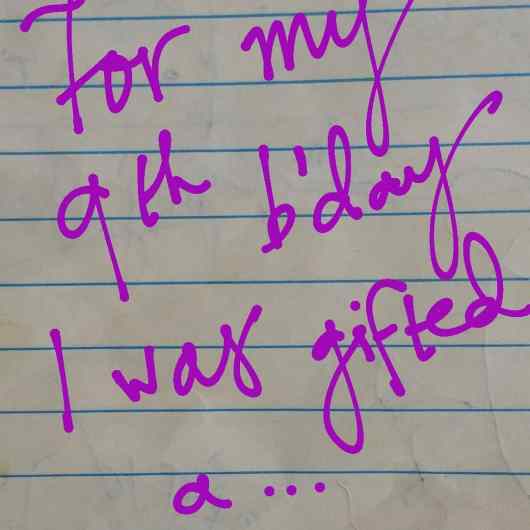 For my
9th b'day
I was gifted
a ...